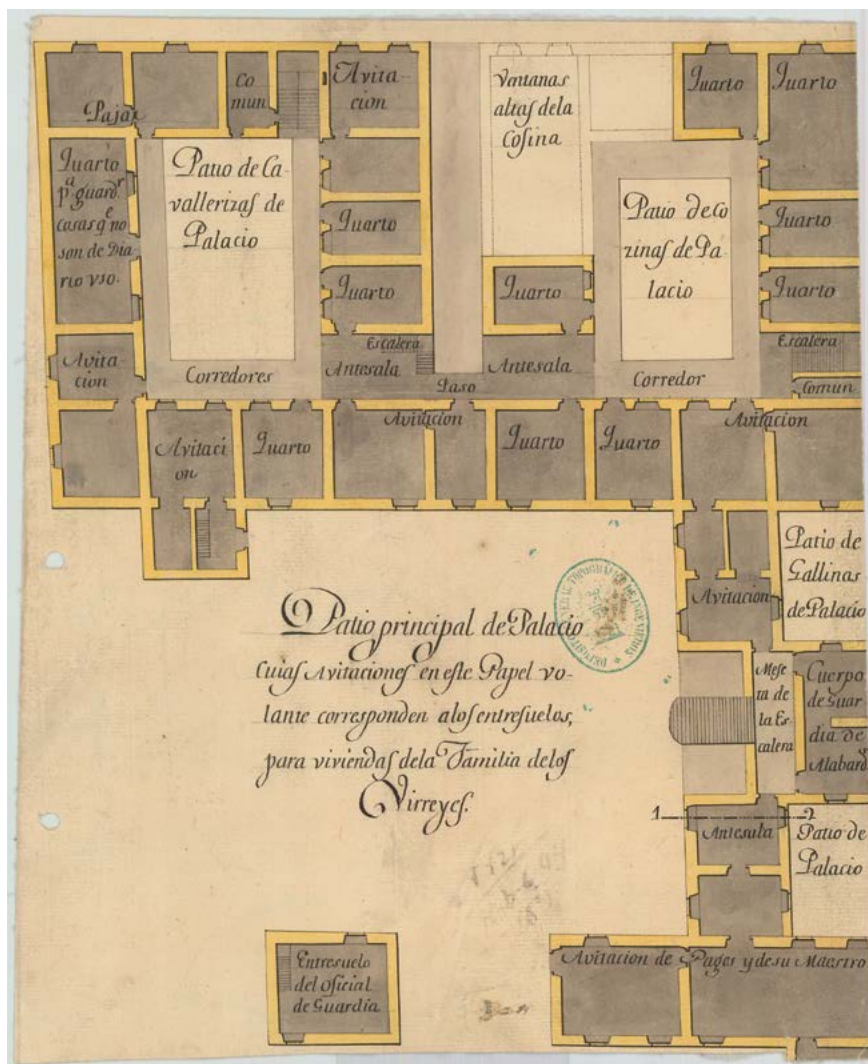 Pajar
Co
mun
Avita-
cion
Ventanas
altas de la
Cosina
Quarto
Quarto
Quarto
pª guardr
cosas qe no
son de Dia
rio vso.
Patio de Ca
vallerizas de
Palacio
Quarto
Quarto
Quarto
Patio de Co
zinas de Pa-
lacio
Quarto
Quarto
Avita
cion
Corredores
Escalera
Antesala
Paso
Antesala
Corredor
Escalera
Comun
Avitaci
on
Quarto
Avitacion
Quarto
Quarto
Avitacion
Patio de
Gallinas
de Palacio
Avitacion
Patio principal de Palacio
cuias Avitaciones en este Papel vo-
lante corresponden a los entresuelos,
para viviendas de la Familia de los
Virreyes.
Mese
ta de
la Es
calera
Cuerpo
de Guar
dia de
Alabards
1 2
Antesala
Patio de
Palacio
Entresuelo
del oficial
de Guardia
Avitacion de Pages y de su Maestro